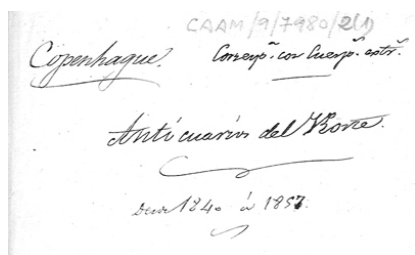 CAAM/9/7980/2(1)
Copenhague. Correspª. con Cuerpº. extrº.
Anticuarios del Norte.
Desde 1840 á 1857.